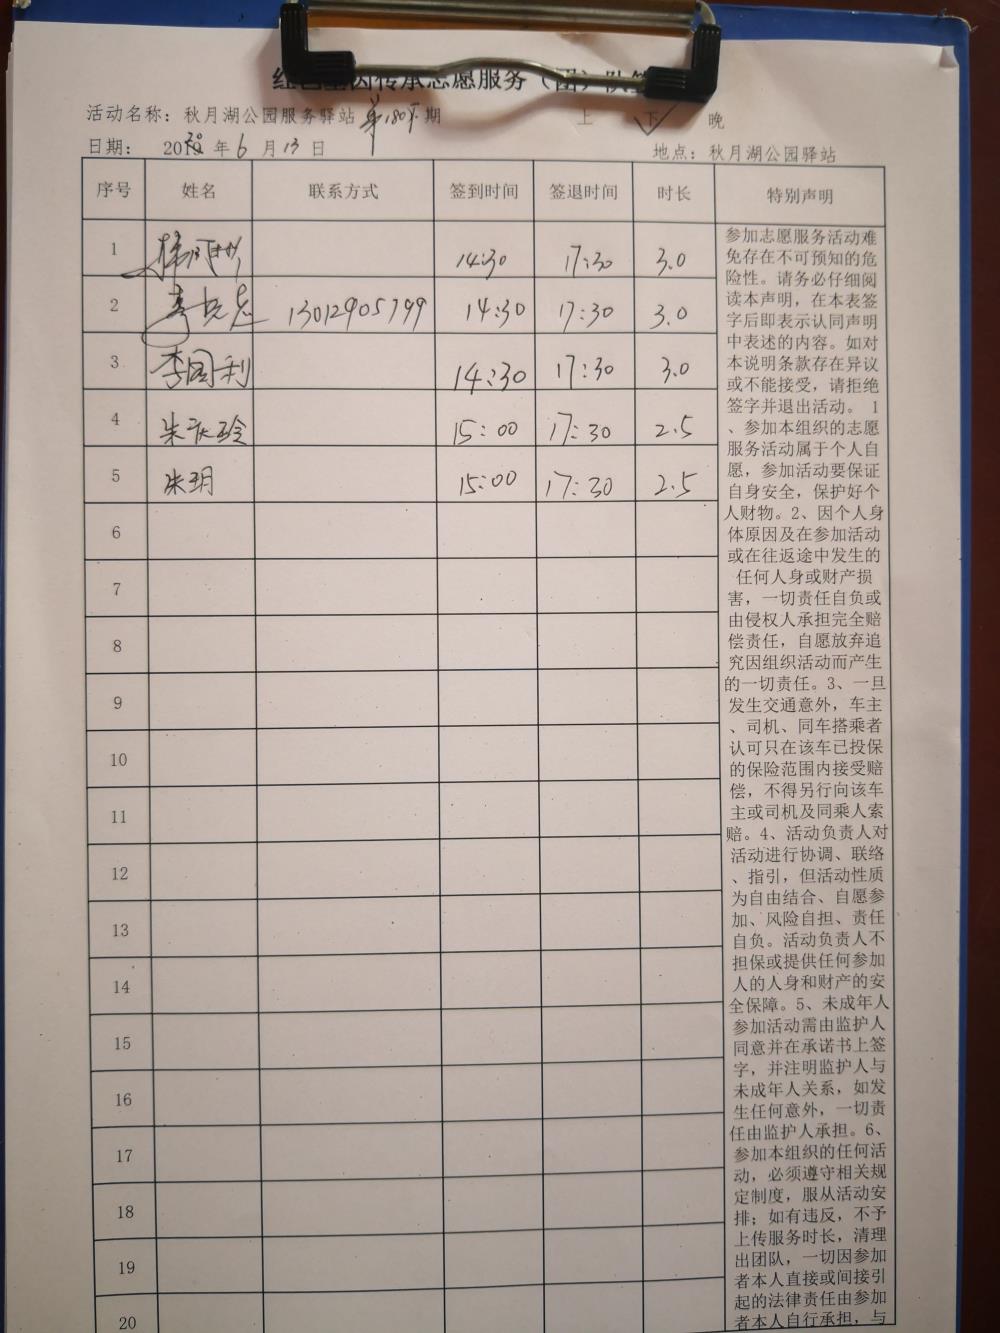 红色基因传承志愿服务（团）队签
活动名称：秋月湖公园服务驿站第180下期
上 下 ✓ 晚
日期： 2020年6月13日
地点：秋月湖公园驿站
序号 姓名 联系方式 签到时间 签退时间 时长 特别声明
1 14:30 17:30 3.0
2 13012905799 14:30 17:30 3.0
3 李国利 14:30 17:30 3.0
4 朱庆玲 15:00 17:30 2.5
5 朱玥 15:00 17:30 2.5
6
7
8
9
10
11
12
13
14
15
16
17
18
19
20
参加志愿服务活动难
免存在不可预知的危
险性。请务必仔细阅
读本声明，在本表签
字后即表示认同声明
中表述的内容。如对
本说明条款存在异议
或不能接受，请拒绝
签字并退出活动。 1
、参加本组织的志愿
服务活动属于个人自
愿，参加活动要保证
自身安全，保护好个
人财物。2、因个人身
体原因及在参加活动
或在往返途中发生的
任何人身或财产损
害，一切责任自负或
由侵权人承担完全赔
偿责任，自愿放弃追
究因组织活动而产生
的一切责任。3、一旦
发生交通意外，车主
、司机、同车搭乘者
认可只在该车已投保
的保险范围内接受赔
偿，不得另行向该车
主或司机及同乘人索
赔。4、活动负责人对
活动进行协调、联络
、指引，但活动性质
为自由结合、自愿参
加、风险自担、责任
自负。活动负责人不
担保或提供任何参加
人的人身和财产的安
全保障。5、未成年人
参加活动需由监护人
同意并在承诺书上签
字，并注明监护人与
未成年人关系，如发
生任何意外，一切责
任由监护人承担。6、
参加本组织的任何活
动，必须遵守相关规
定制度，服从活动安
排；如有违反，不予
上传服务时长，清理
出团队，一切因参加
者本人直接或间接引
起的法律责任由参加
者本人自行承担，与